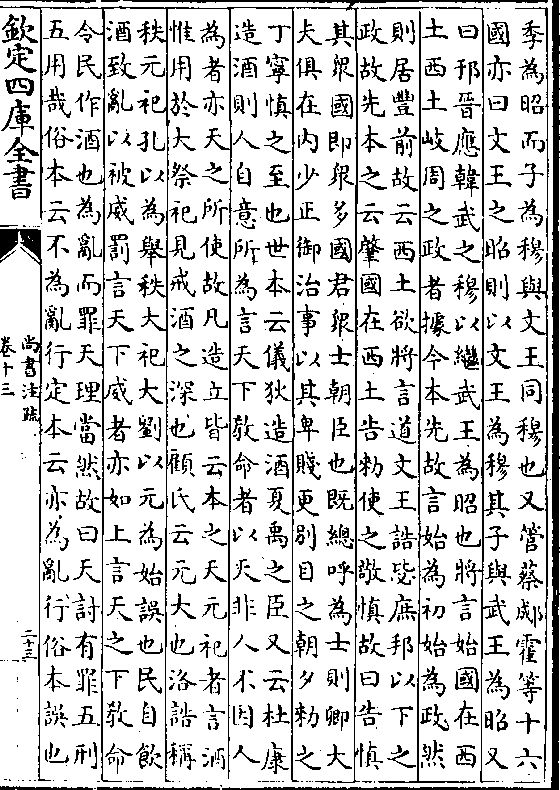 季為昭而子為穆與文王同穆也又管蔡郕霍等十六
國亦曰文王之昭則以文王為穆其子與武王為昭又
曰邘晉應韓武之穆以繼武王為昭也將言始國在西
土西土岐周之政者據今本先故言始為初始為政然
則居豐前故云西土欲將言道文王誥毖庶邦以下之
政故先本之云肇國在西土告勅使之敬慎故曰告慎
其衆國即衆多國君衆士朝臣也既總呼為士則卿大
夫俱在内少正御治事以其卑賤更别目之朝夕勅之
丁寧慎之至也世本云儀狄造酒夏禹之臣又云杜康
造酒則人自意所為言天下敎命者以天非人不因人
為者亦天之所使故凡造立皆云本之天元祀者言酒
惟用於大祭祀見戒酒之深也顧氏云元大也洛誥稱
秩元祀孔以為舉秩大祀大劉以元為始誤也民自飲
酒致亂以被威罰言天下威者亦如上言天之下敎命
令民作酒也為亂而罪天理當然故曰天討有罪五刑
五用哉俗本云不為亂行定本云亦為亂行俗本誤也
欽定四庫全書
尚書注疏
卷十三
二十三